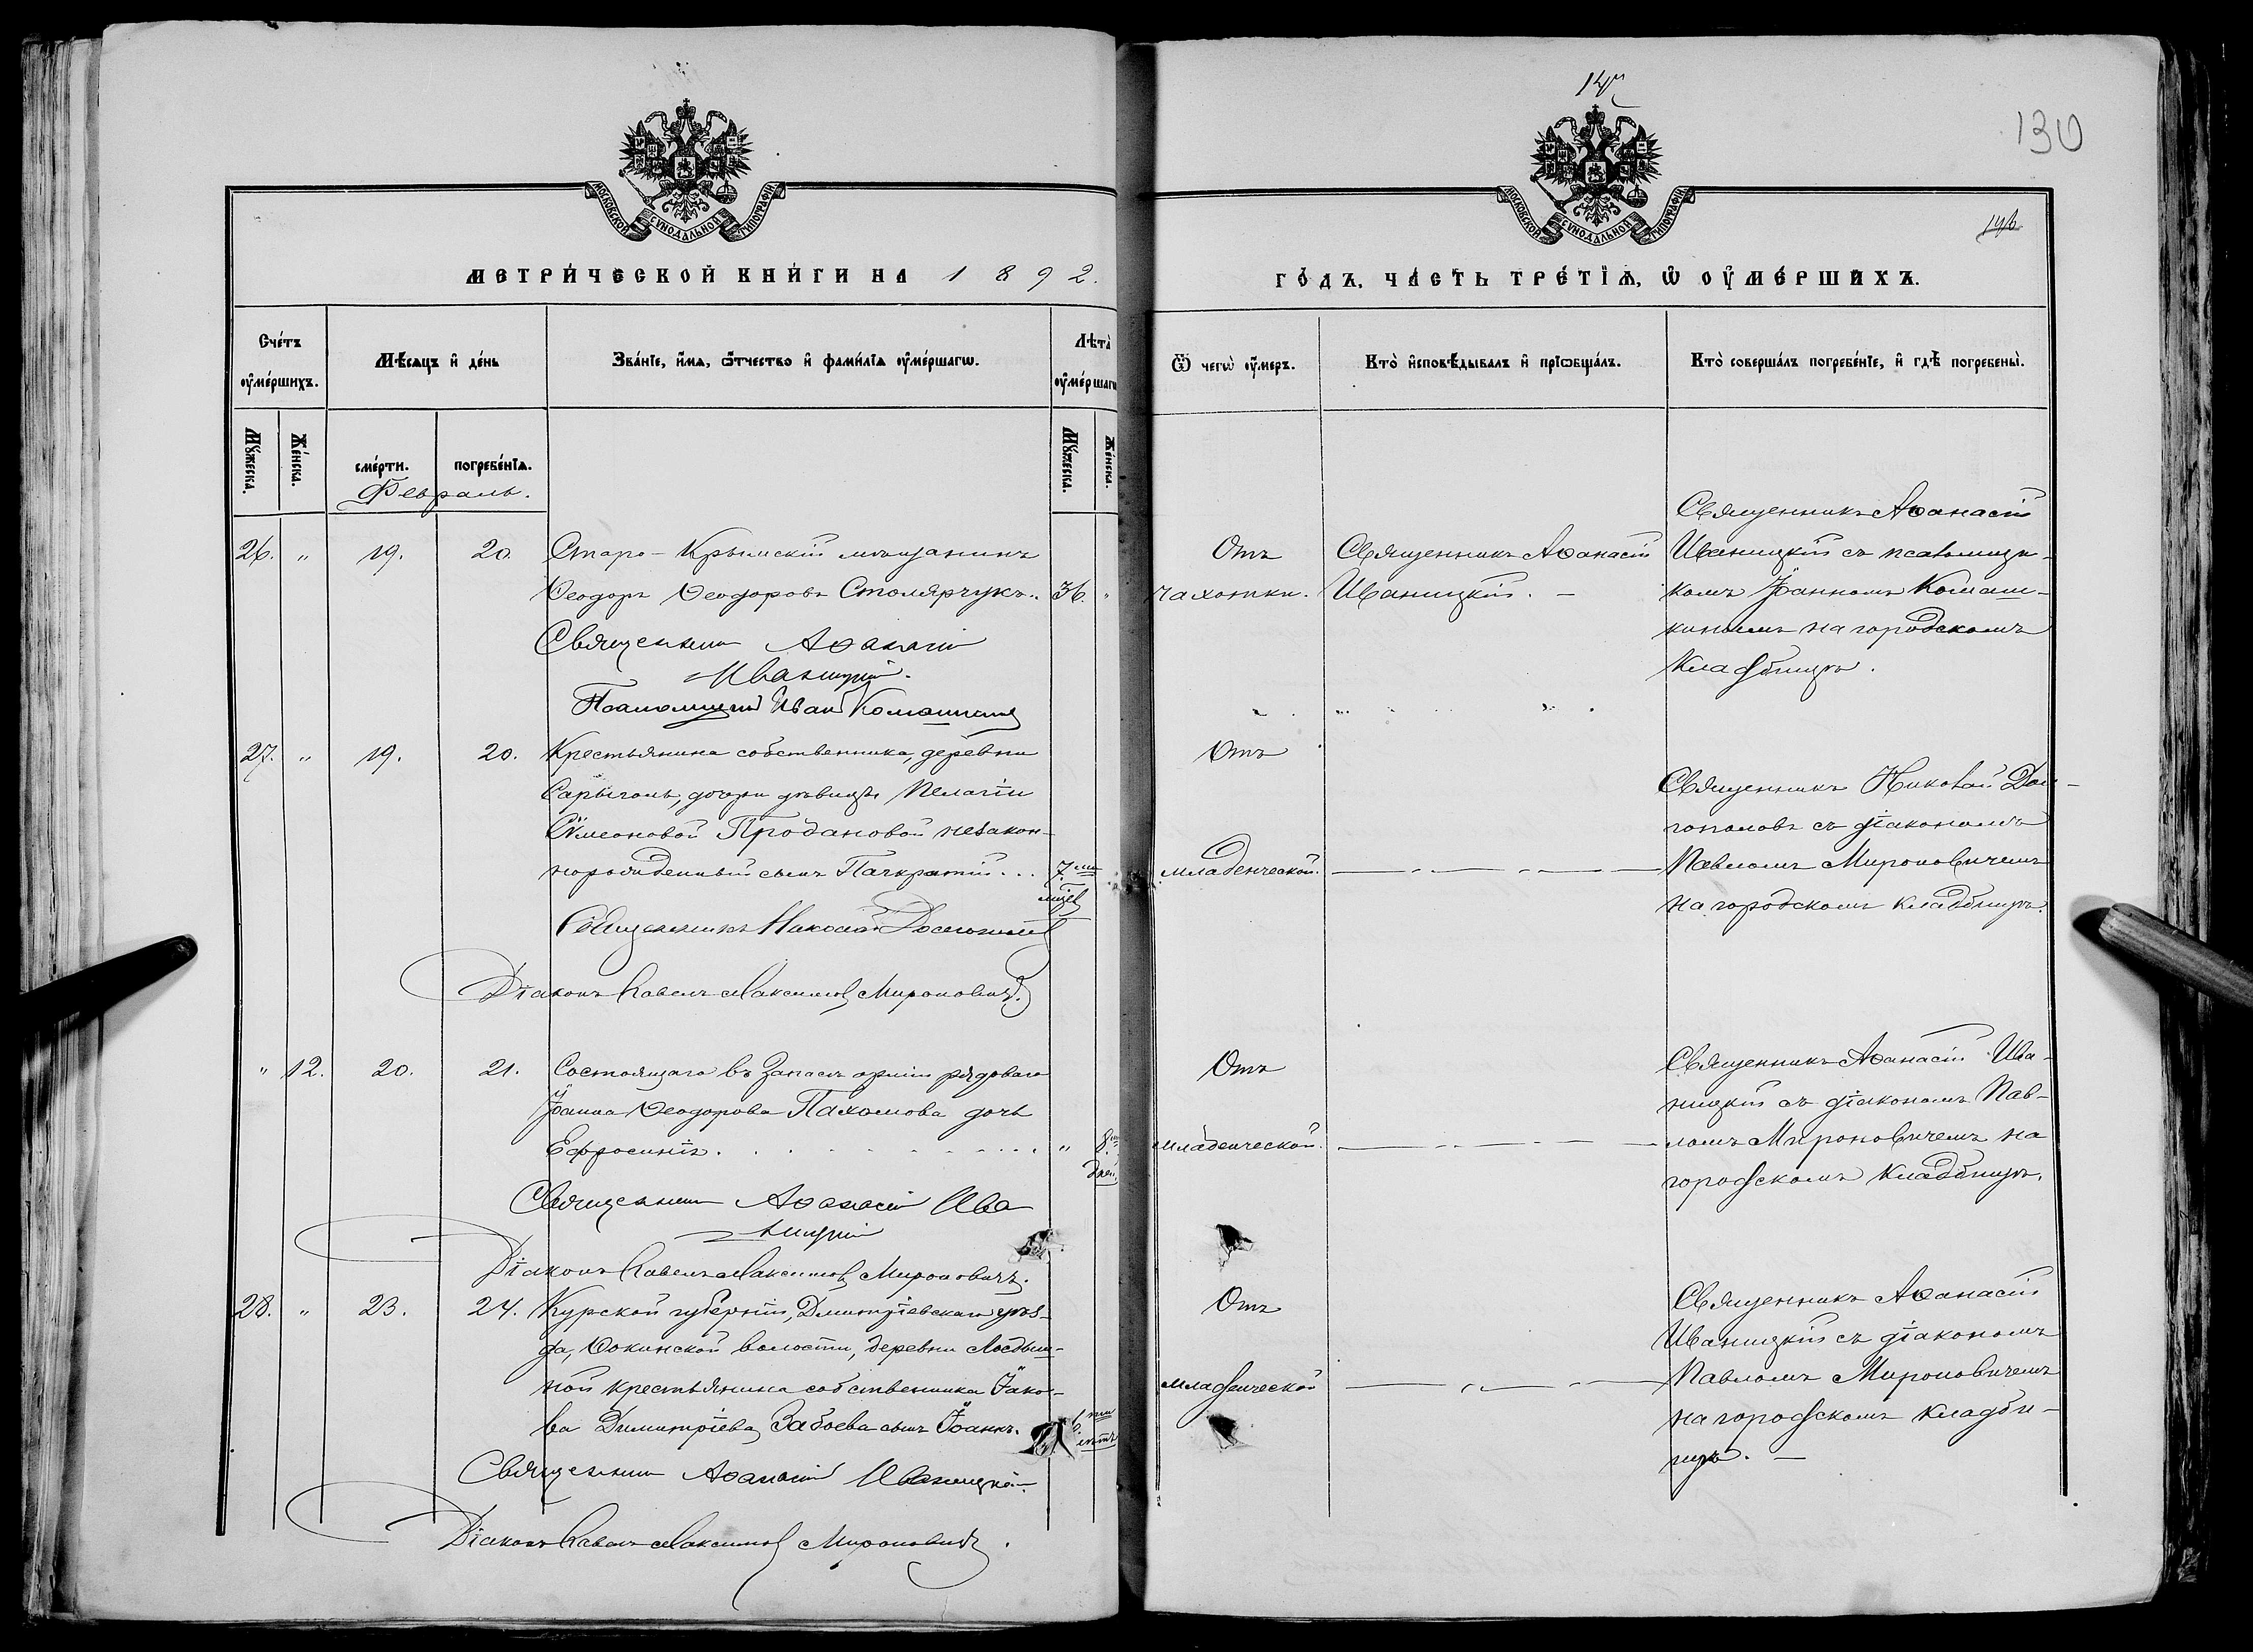 130
146
МОСКОВСКОЙ СѴНОДАЛЬНОЙ ТИПОГРАФІИ
МОСКОВСКОЙ СѴНОДАЛЬНОЙ ТИПОГРАФІИ
МЕТРИ́ЧЕСКОЙ КНИ́ГИ НА 1892.
ГО́ДЪ, ЧА́СТЬ ТРЕ́ТІѦ, Ѡ ОУ҆МЕ́РШИХЪ.
Сче́тъ оу҆ме́ршихъ.
Мѣ́сяцъ и҆ де́нь
Зва́ніе, и҆́мѧ, ѻ҆́тчество и҆ фами́лїѧ оу҆ме́ршагѡ.
Лѣта̀ оу҆ме́ршагѡ
Ѿ чегѡ̀ оу҆́меръ.
Кто̀ и҆сповѣ́дывалъ и҆ прїѡбща́лъ.
Кто̀ соверша́лъ погребе́нїе, и҆ гдѣ̀ погребены̀.
Мꙋ́жеска.
Же́нска.
сме́рти.
погребе́нїѧ.
Мꙋ́жеска.
Же́нска.
Февраль.
26. " 19. 20. Старо-Крымскій мѣщанинъ
Ѳеодоръ Ѳеодоровъ Столярчукъ.. 36. "
Священникъ Аѳанасій
Иваницкій.
Псаломщикъ Иванъ Комашкинъ
Отъ
чахотки.
Священникъ Аѳанасій
Иваницкій. —
Священникъ Аѳанасій
Иваницкій съ псаломщи-
комъ Іоанномъ Комаш-
кинымъ на городскомъ
кладбищѣ.
27. " 19. 20. Крестьянина собственника, деревни
Сарыголь, дочери дѣвицы Пелагіи
Сѵмеоновой Продановой незакон-
норожденный сынъ Панкратій... 7ми
мцев
Священникъ Николай Долгополовъ
Діаконъ Павелъ Максимовъ Мироновичъ.
Отъ
младенческой.
Священникъ Николай Дол-
гополовъ съ діакономъ
Павломъ Мироновичемъ
на городскомъ кладбищѣ.
" 12. 20. 21. Состоящаго въ запасѣ арміи рядоваго
Іоанна Ѳеодорова Пахомова дочь
Ефросинія. " 8ми
дней.
Священникъ Аѳанасій Ива
ницкій
Діаконъ Павелъ Максимовъ Мироновичъ.
Отъ
младенческой.
Священникъ Аѳанасій Ива-
ницкій съ діакономъ Пав-
ломъ Мироновичемъ на
городскомъ кладбищѣ.
28. " 23. 24. Курской губерніи, Дмитріевскаго уѣз-
да, волости, деревни
ной крестьянина собственника Іако-
ва Димитріева Забоева сынъ Іоаннъ.
лѣтъ
Священникъ Аѳанасій Иваницкій.
Діаконъ Павелъ Максимовъ Мироновичъ.
Отъ
младенческой
Священникъ Аѳанасій
Иваницкій съ діакономъ
Павломъ Мироновичемъ
на городскомъ кладби-
щѣ. —